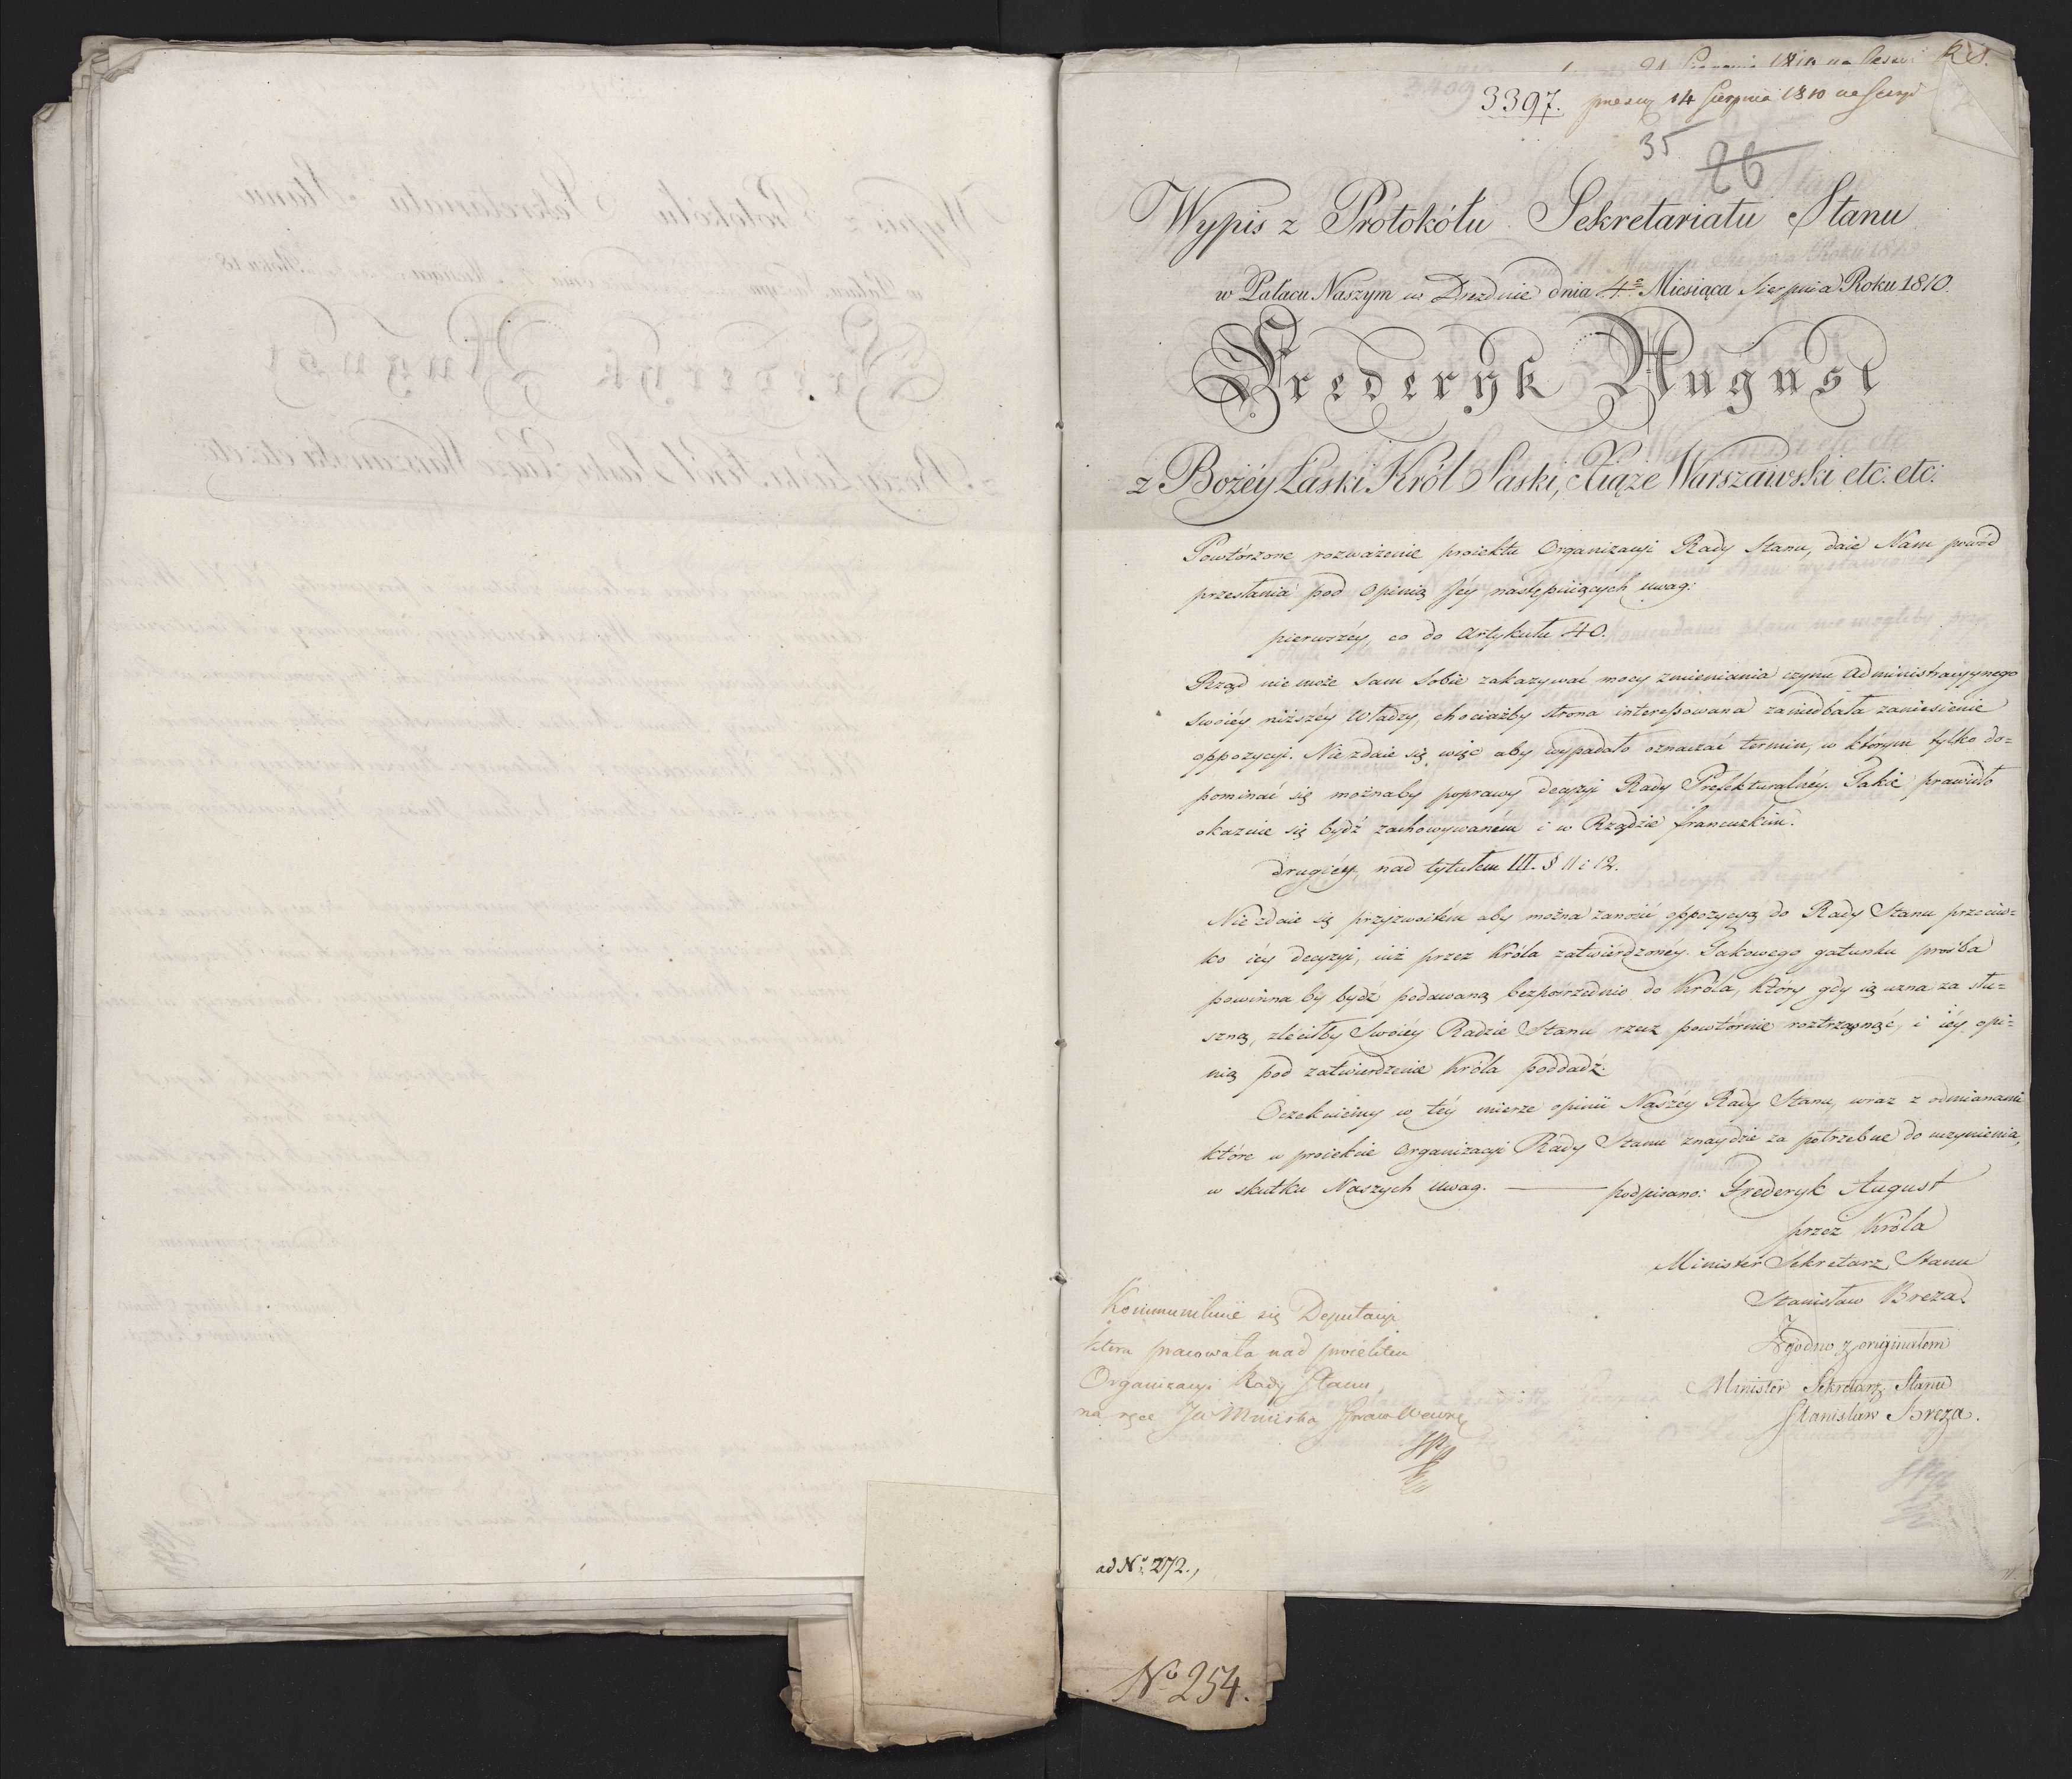 R. S.
1810 na
3397. 14 Sierpnia 1810 na
35
26
Wypis z Protokółu Sekretariatu Stanu
w Pałacu Naszym w Dreźnie dnia 4º Miesiąca Sierpnia Roku 1810.
Frederyk August
z Bożéy Łaski Król Saski, Xiąże Warszawski etc: etc:
Powtórzone rozważenie proiektu Organizacyi Rady Stanu, daie Nam powód
przesłania pod opinią Jéy następuiących uwag:
pierwszéy, co do Artykułu 40.
Rząd nie może sam sobie zakazywać mocy zmieniania czynu Administracyynego
swoiéy niższéy Władzy, chociażby strona interessowana zaniedbała zaniesienie
oppozycyi. Nie zdaie się więc aby wypadało oznaczać termin, w którym tylko do=
pominać się możnaby poprawy decyzyi Rady Prefekturalnéy. Takie prawidło
okazuie się bydź zachowywaném i w Rządzie francuzkim.
drugiéy, nad tytułem III. § 11 i 12.
Nie zdaie się przyzwoitém aby można zanosić oppozycyą do Rady Stanu przeciw=
ko iéy decyzyi, iuż przez Króla zatwierdzonéy. Takowego gatunku prośba
powinna by bydź podawaną bezpośrzednio do Króla, który gdy ią uzna za słu=
szną, zleciłby Swoiéy Radzie Stanu rzecz powtórnie roztrząsnąć, i iéy opi=
nią pod zatwierdzenie Króla poddadź.
Oczekuiemy w téy mierze opinii Naszéy Rady Stanu, wraz z odmianami
które w proiekcie Organizacyi Rady Stanu znaydzie za potrzebne do uczynienia,
w skutku Naszych uwag. ——— podpisano: Frederyk August
przez Króla
Minister Sekretarz Stanu
Stanisław Breza.
Zgodno z originałem
Minister Sekretarz Stanu
Stanisław Breza.
Kommunikuie się Deputacyi
która pracowała nad proiektem
Organizacyi Rady Stanu,
na ręce JW Ministra Spraw Wewnę
ad Nº 272.,
Nº 254.